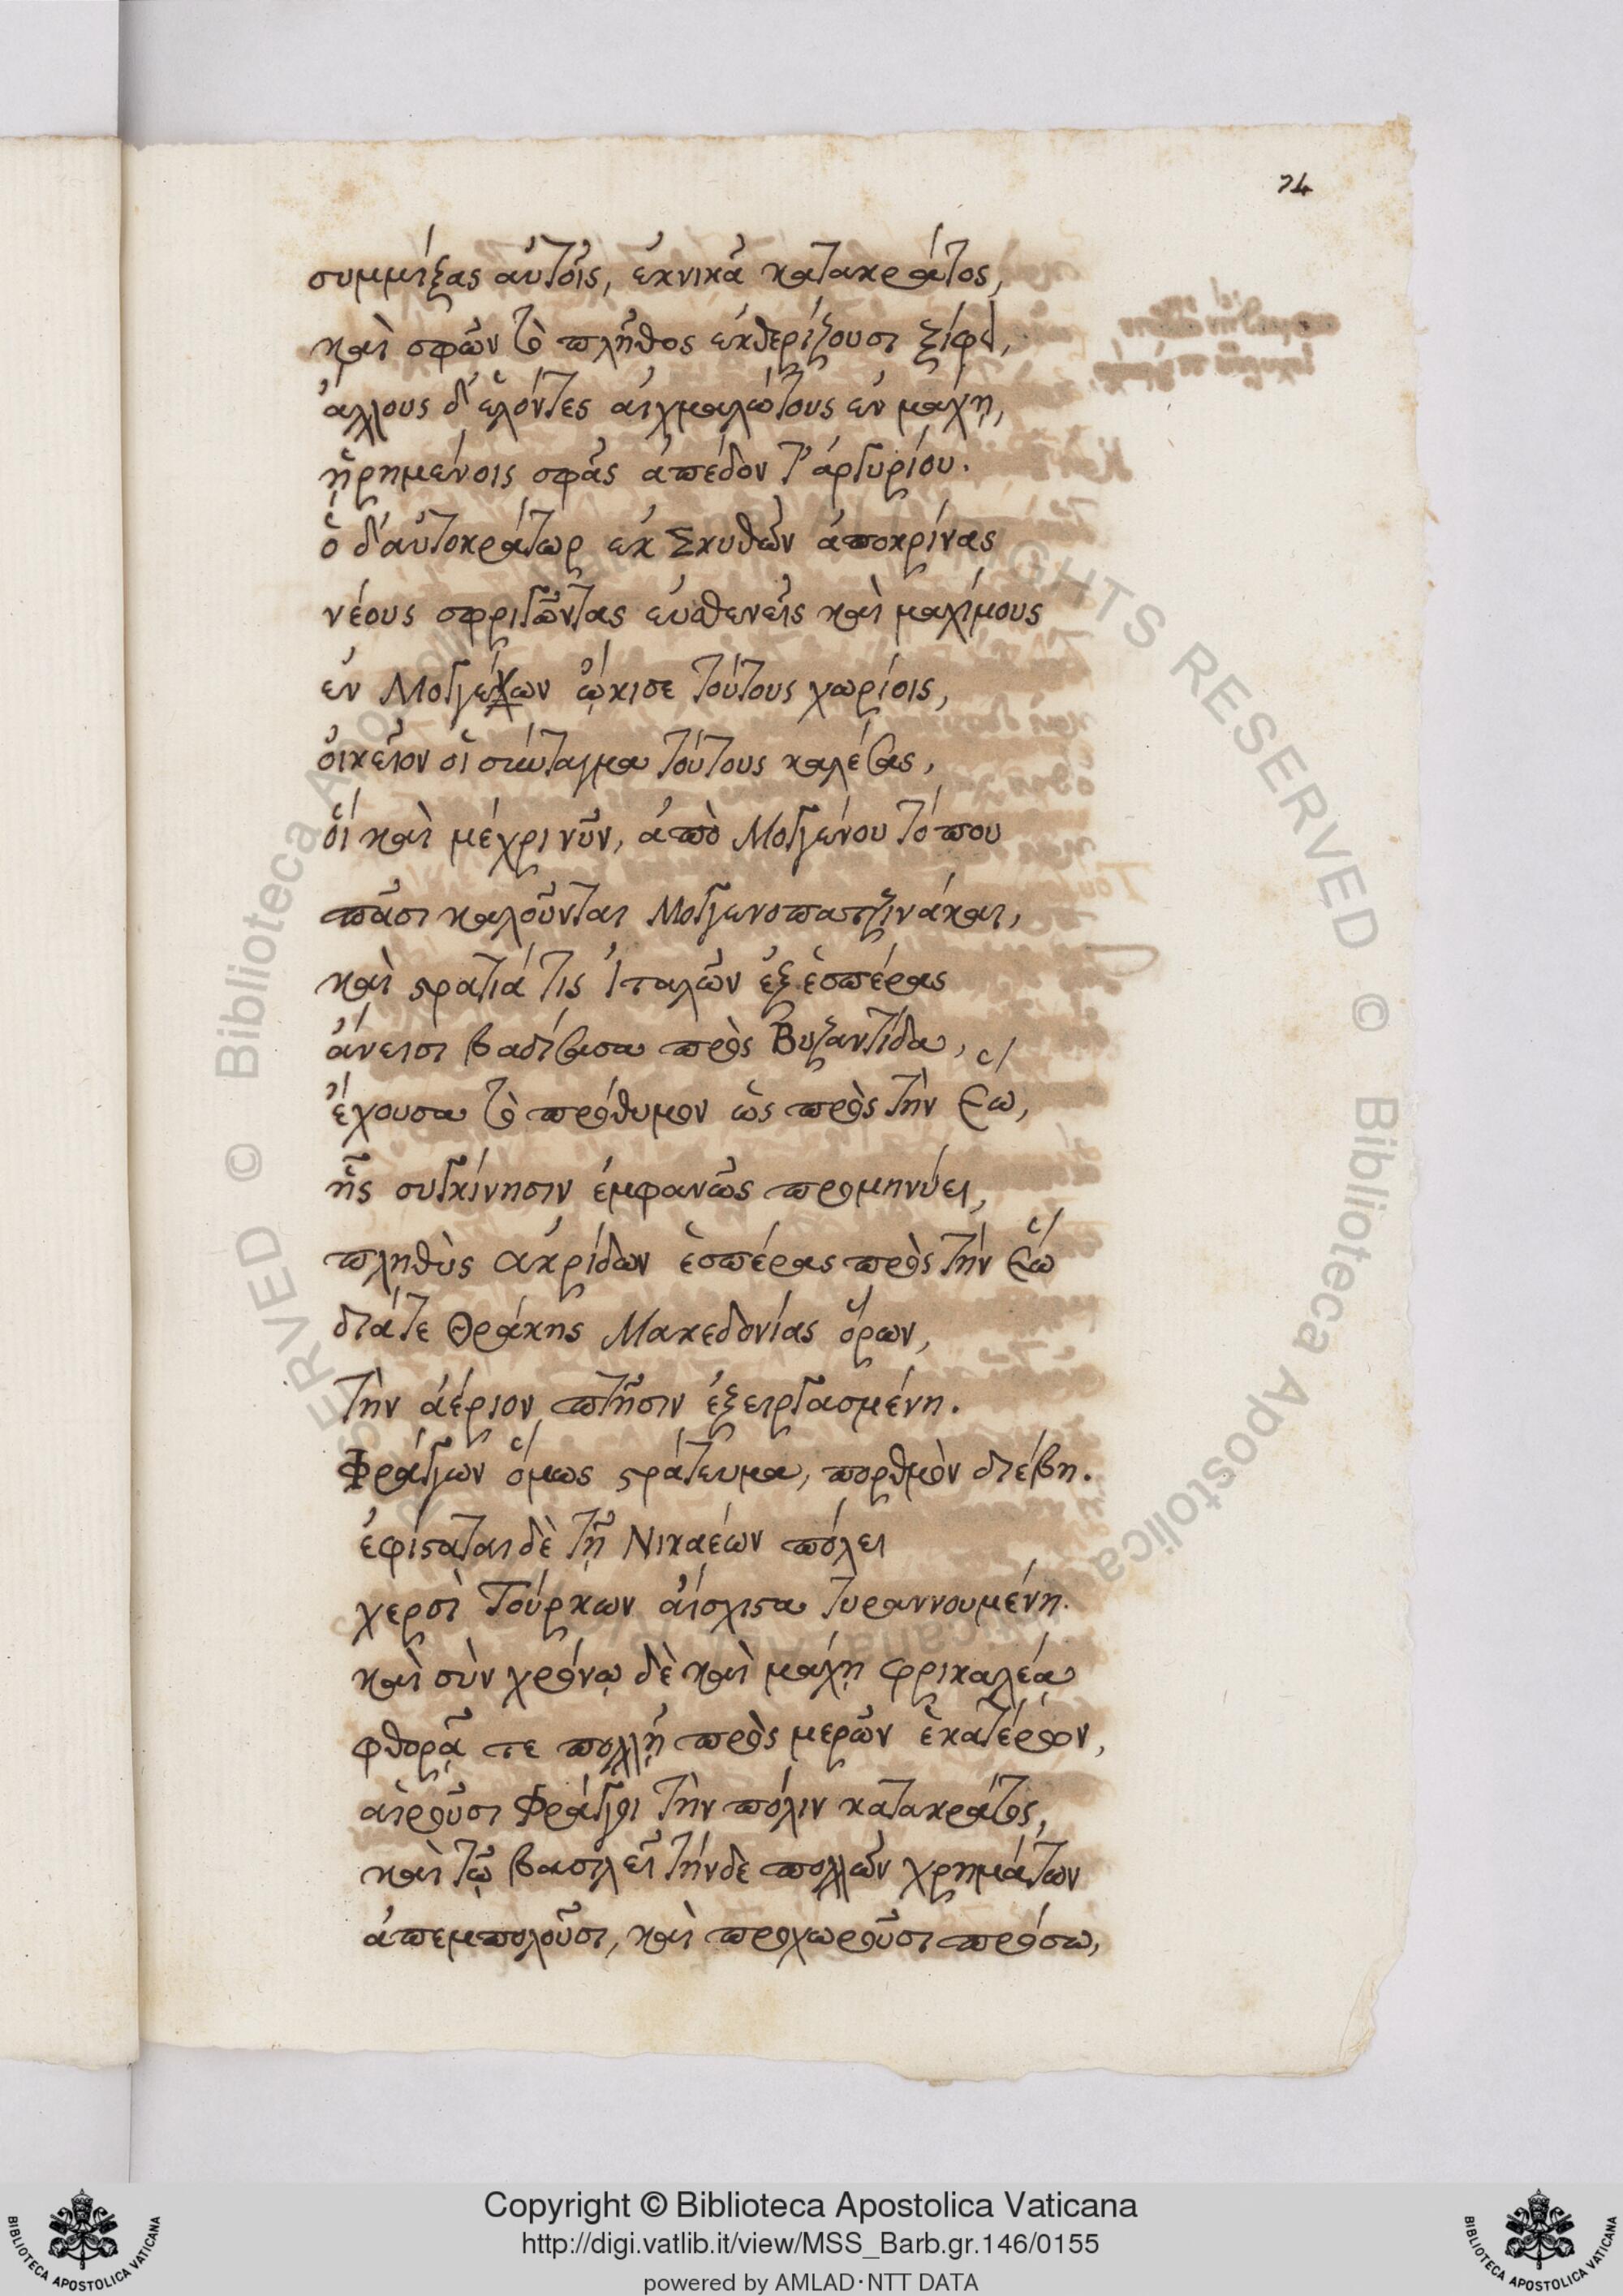 74
συμμίξας αὐτοῖς, ἐκνικᾷ κατακράτος,
καὶ σφῶν τὸ πλῆθος ἐκθερίζουσι ξίφει,
ἄλλους δ' ἑλόντες αἰχμαλώτους ἐν μάχῃ,
ᾑρημένοις σφᾶς ἀπέδον τ' ἀργυρίου.
ὁ δ' αὐτοκράτωρ ἐκ Σκυθῶν ἀποκρίνας
νέους σφριγῶντας εὐσθενεῖς καὶ μαχίμους
ἐν Μογλένων ᾤκισε τούτους χωρίοις,
οἰκεῖον οἱ σύνταγμα τούτους καλέσας,
οἳ καὶ μέχρι νῦν, ἀπὸ Μογλένου τόπου
πᾶσι καλοῦνται Μογλενοπατζινάκαι,
καὶ στρατιά τις Ἰταλῶν ἐξ ἑσπέρας
ἄνεισι βαδίσασα πρὸς Βυζαντίδα,
ἔχουσα τὸ πρόθυμον ὡς πρὸς τὴν ἕω,
ἧς συγκίνησιν ἐμφανῶς προμηνύει,
πληθὺς ἀκρίδων ἑσπέρας πρὸς τὴν ἕω
διά τε Θράκης Μακεδονίας ὅρων,
τὴν ἀέριον πτῆσιν ἐξειργασμένη.
Φράγγων ὅμως στράτευμα, πορθμὸν διέβη.
ἐφίσταται δὲ τῇ Νικαέων πόλει
χερσὶ Τούρκων αἴσχιστα τυραννουμένη.
καὶ σὺν χρόνῳ δὲ καὶ μάχῃ φρικαλέᾳ
φθορᾷ τε πολλῇ πρὸς μερῶν ἑκατέρων,
αἱροῦσι Φράγγοι τὴν πόλιν κατακράτος,
καὶ τῷ βασιλεῖ τήνδε πολλῶν χρημάτων
ἀπεμπολοῦσι, καὶ προχωροῦσι πρόσω,
© Biblioteca Apostolica Vaticana ALL RIGHTS RESERVED © Biblioteca Apostolica Vaticana ALL RIGHTS RESERVED
Copyright © Biblioteca Apostolica Vaticana
http://digi.vatlib.it/view/MSS_Barb.gr.146/0155
powered by AMLAD·NTT DATA
BIBLIOTECA APOSTOLICA VATICANA
BIBLIOTECA APOSTOLICA VATICANA